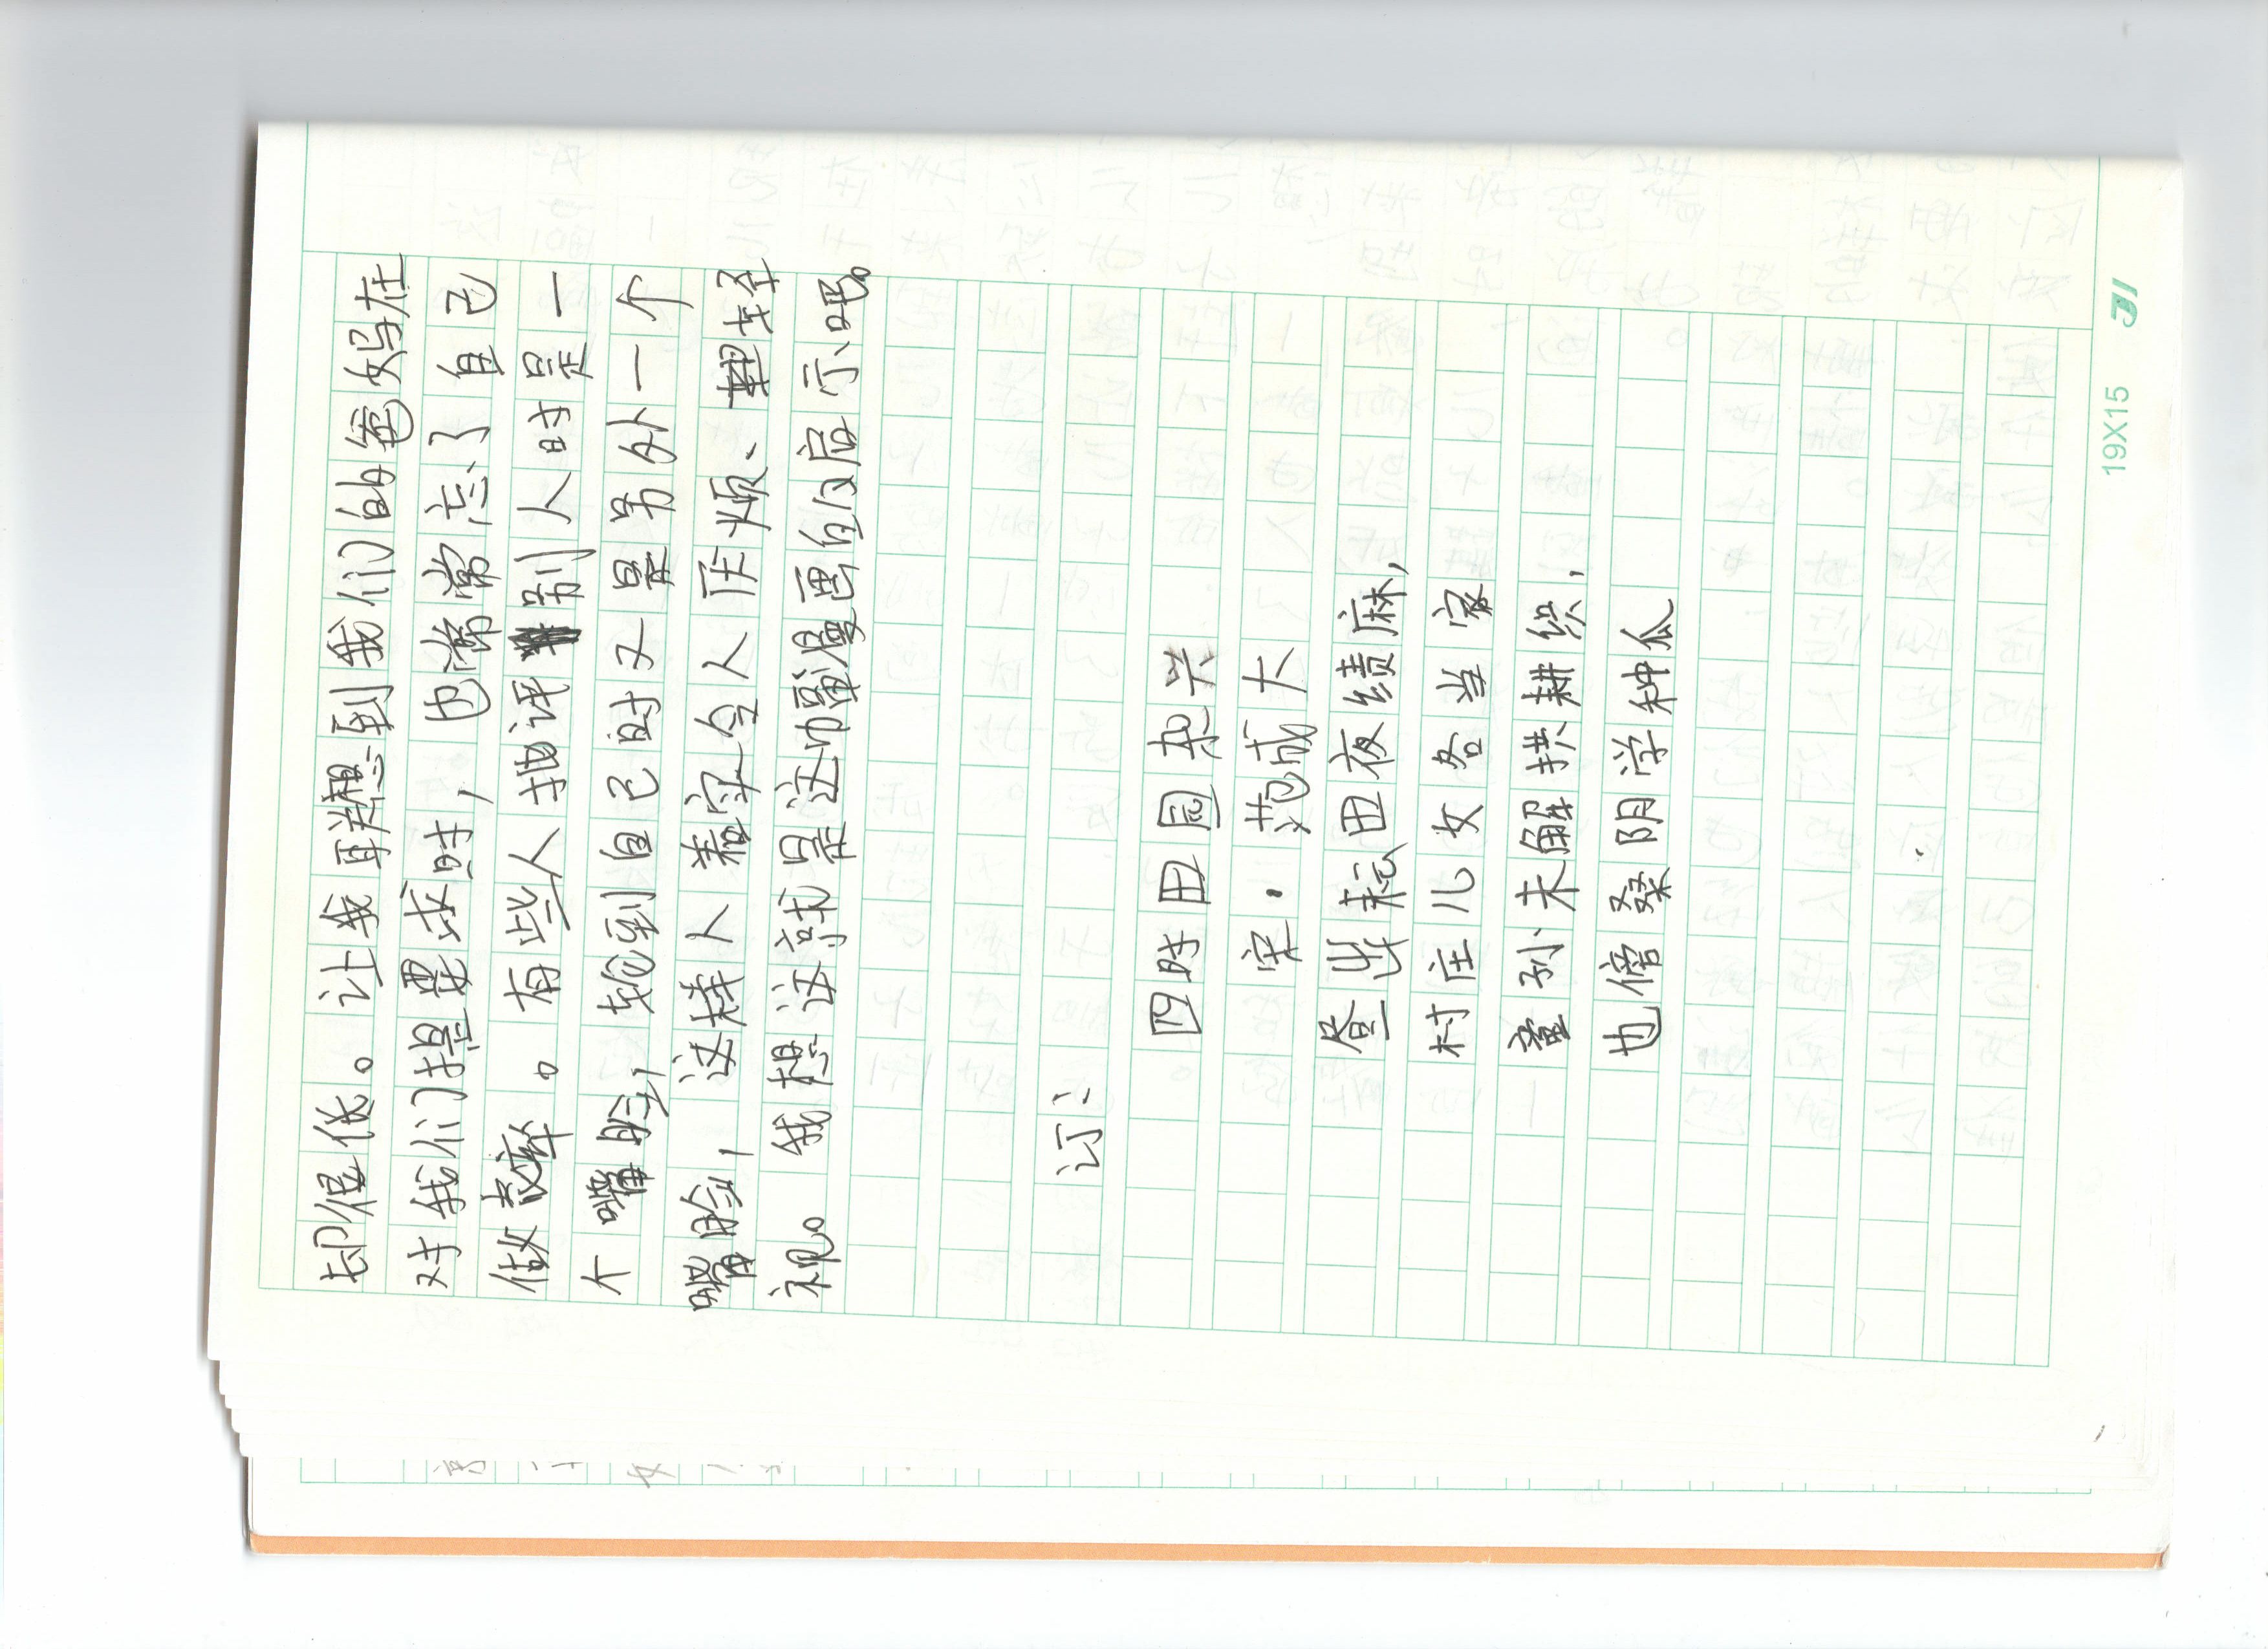 却很低。让我联想到我们的爸妈在
对我们提要求时，也常常忘了自己
做表率。有些人批评别人时是一
个嘴脸，轮到自己时又是另外一个
嘴脸，这样人着实令人厌烦、轻
视。我想这就是这幅漫画的启示吧。
订：
四时田园杂兴
宋.范成大
昼出耘田夜绩麻，
村庄儿女各当家
童孙未解拱耕织，
也傍桑阴学种瓜
19X15